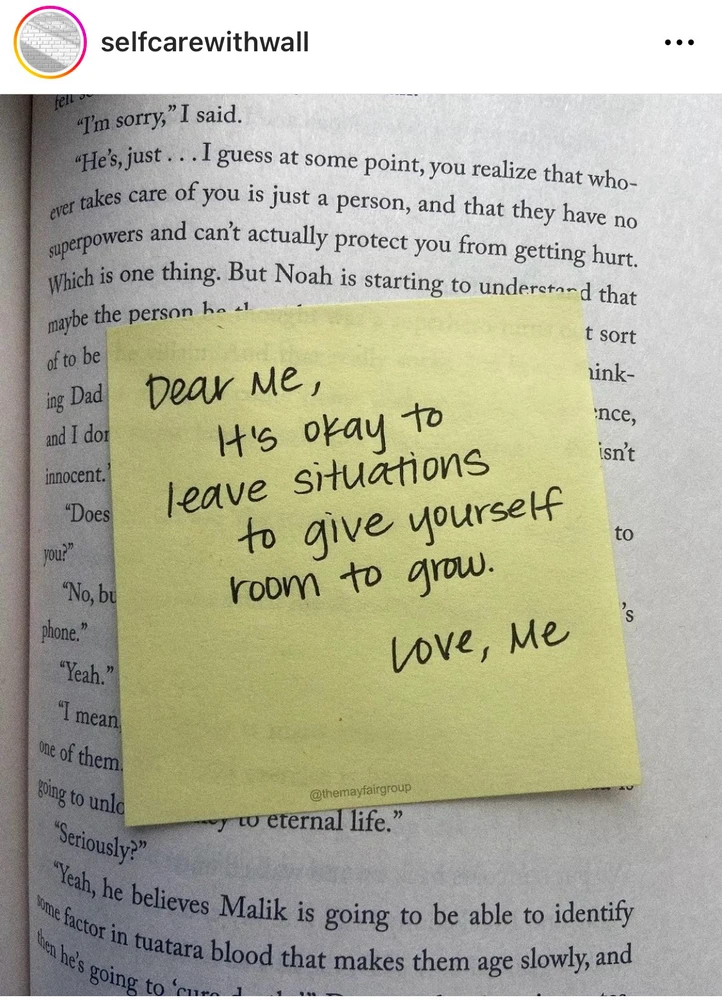 selfcarewithwall
“I'm sorry,” I said.
“He's, just . . . I guess at some point, you realize that who-
ever takes care of you is just a person, and that they have no
superpowers and can't actually protect you from getting hurt.
Which is one thing. But Noah is starting to understand that
maybe the person
t sort
of to be
ink-
ing Dad
ence,
and I
isn't
innocent.’
“Does
to
you?”
“No,
's
phone.”
“Yeah.”
“I mean,
one of them.
going to
to eternal life.”
“Seriously?”
“Yeah, he believes Malik is going to be able to identify
some factor in tuatara blood that makes them age slowly, and
then he's going to
Dear Me,
It's okay to
leave situations
to give yourself
room to grow.
Love, Me
@themayfairgroup